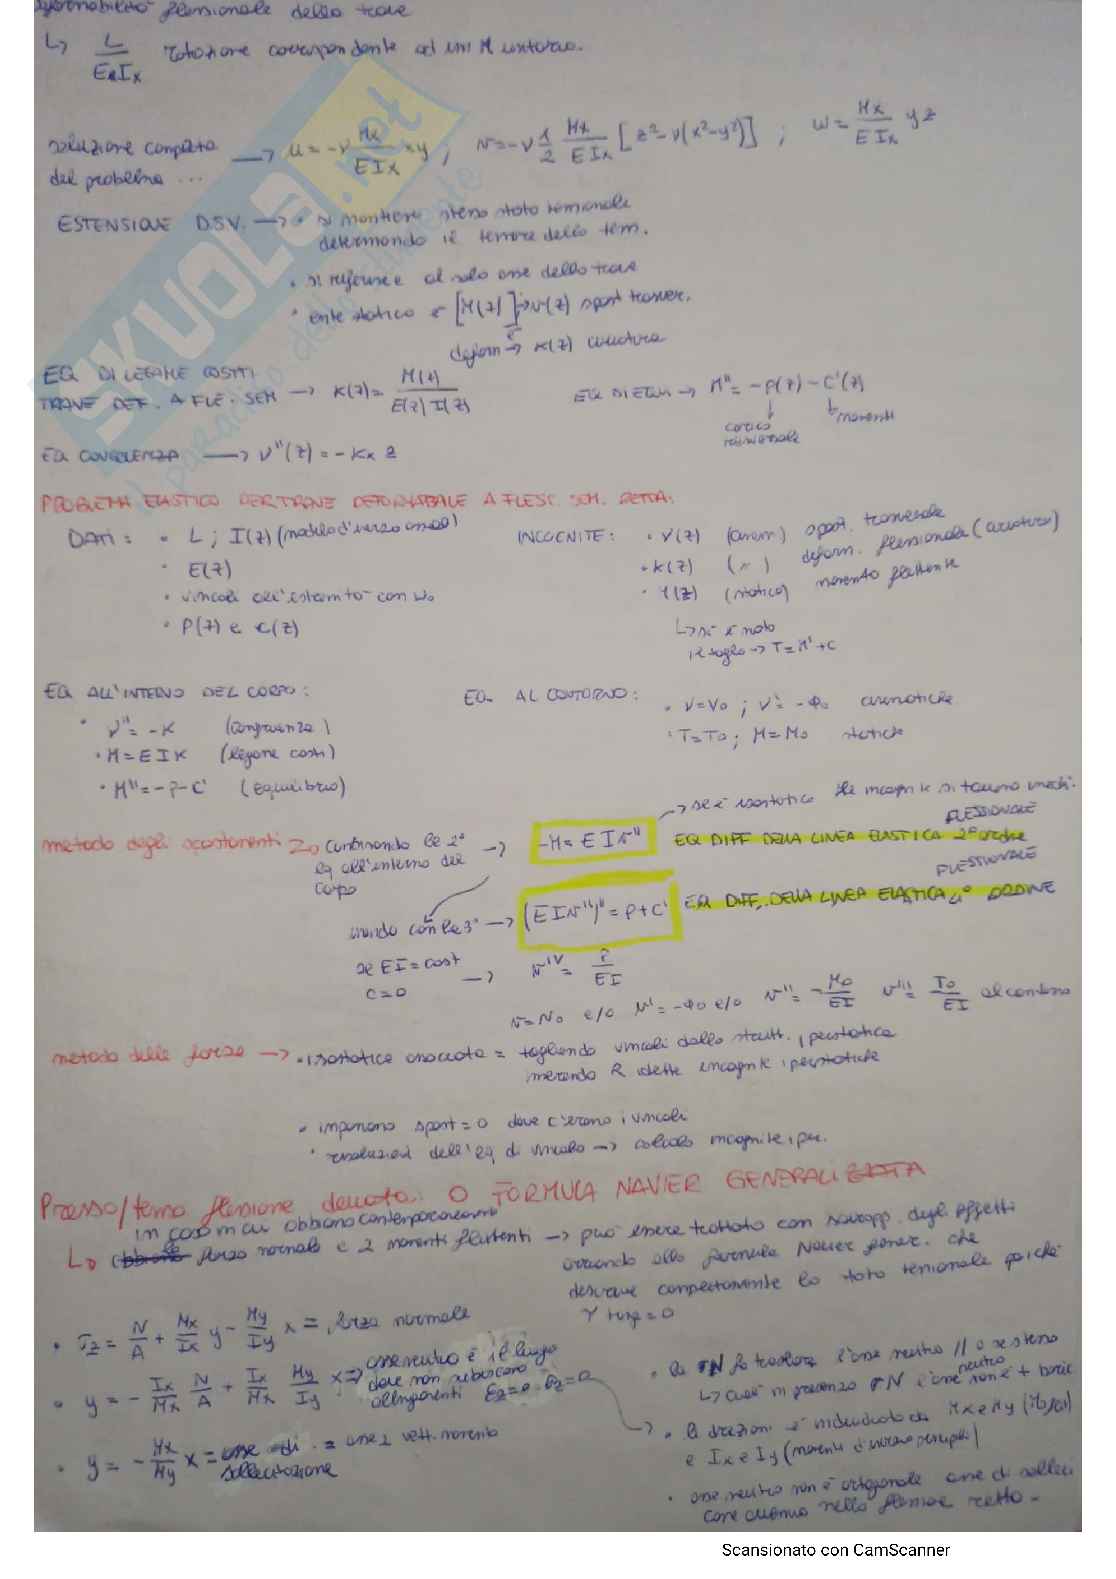 deformabilità flessionale della trave
↳ L/(E I_x) rotazione corrispondente ad un M unitario.
soluzione completa del problema ... → u = -ν Mx/(E Ix) xy ; v = -ν 1/2 Mx/(E Ix) [z² - ν(x²-y²)] ; w = Mx/(E Ix) yz
ESTENSIONE D.S.V. → • si mantiene stesso stato tensionale
determinando il tensore delle tens.
• si riferisce al solo asse della trave
• ente statico è [M(z)] → v(z) spost trasver.
deform → K(z) curvatura
EQ DI LEGAME COSTIT
TRAVE DEF. A FLE. SEM → K(z) = M(z)/(E(z) I(z))
EQ DI EQUI → M'' = -p(z) - c'(z)
carico trasversale
momenti
EQ CONGRUENZA → v''(z) = -Kx z
PROBLEMA ELASTICO PER TRAVE DEFORMABILE A FLESS. SEM. RETTA:
DATI: • L ; I(z) (modello d'inerzia assial)
• E(z)
• vincoli all'estremità con w₀
• p(z) e c(z)
INCOGNITE: • v(z) (cinem) spost. trasversale
• K(z) (") deform. flessionale (curvatura)
• M(z) (statica) momento flettente
↳ si è noto
il taglio → T = M' + C
EQ ALL'INTERNO DEL CORPO:
• v'' = -K (congruenza)
• M = E I K (legame costi)
• M'' = -p - c' (equilibrio)
EQ. AL CONTORNO:
• v = v₀ ; v' = -φ₀ cinematiche
• T = T₀ ; M = M₀ statiche
→ se è isostatico le incognite si trovano
metodo degli spostamenti ↳ combinando le 2
eq all'interno del
corpo
→ -M = E I v'' EQ DIFF DELLA LINEA ELASTICA FLESSIONALE 2° ordine
unendo con la 3° → (E I v'')'' = p + c' EQ DIFF. DELLA LINEA ELASTICA FLESSIONALE 4° ORDINE
se EI = cost
c = 0 → v^IV = p/EI
v = v₀ e/o v' = -φ₀ e/o v'' = -M₀/EI v''' = T₀/EI al contorno
metodo delle forze → • isostatica associata = togliendo vincoli dalla strutt. iperstatica
inserendo R dette incognite iperstatiche
• imponiamo spost = 0 dove c'erano i vincoli
• risoluzioni dell'eq di vincolo → calcolo incognite iper.
Presso/tenso flessione deviata: O FORMULA NAVIER GENERALIZZATA
in caso in cui abbiamo contemporaneamente
↳ forza normale e 2 momenti flettenti → può essere trattato con sovrapp. degli effetti
arrivando alla formula Navier gener. che
descrive completamente lo stato tensionale poiché
τ tang = 0
• σz = N/A + Mx/Ix y - My/Iy x = forza normale
• y = - Ix/Mx N/A + Ix/Mx My/Iy x ⇒ asse neutro è il luogo
dove non subiscono
allungamenti εz=0 σz=0
• y = - Mx/My x = asse di sollecitazione = asse ⊥ vett. momento
• la N fa traslare l'asse neutro // a se stesso
↳ cioè in presenza N l'asse neutro non è + baric
→ • la direzione è individuata da Mx e My
e Ix e Iy (momenti d'inerzia principali)
• asse neutro non è ortogonale asse di solleci
come avveniva nella flessione retta.
SKUOLA.net
Scansionato con CamScanner